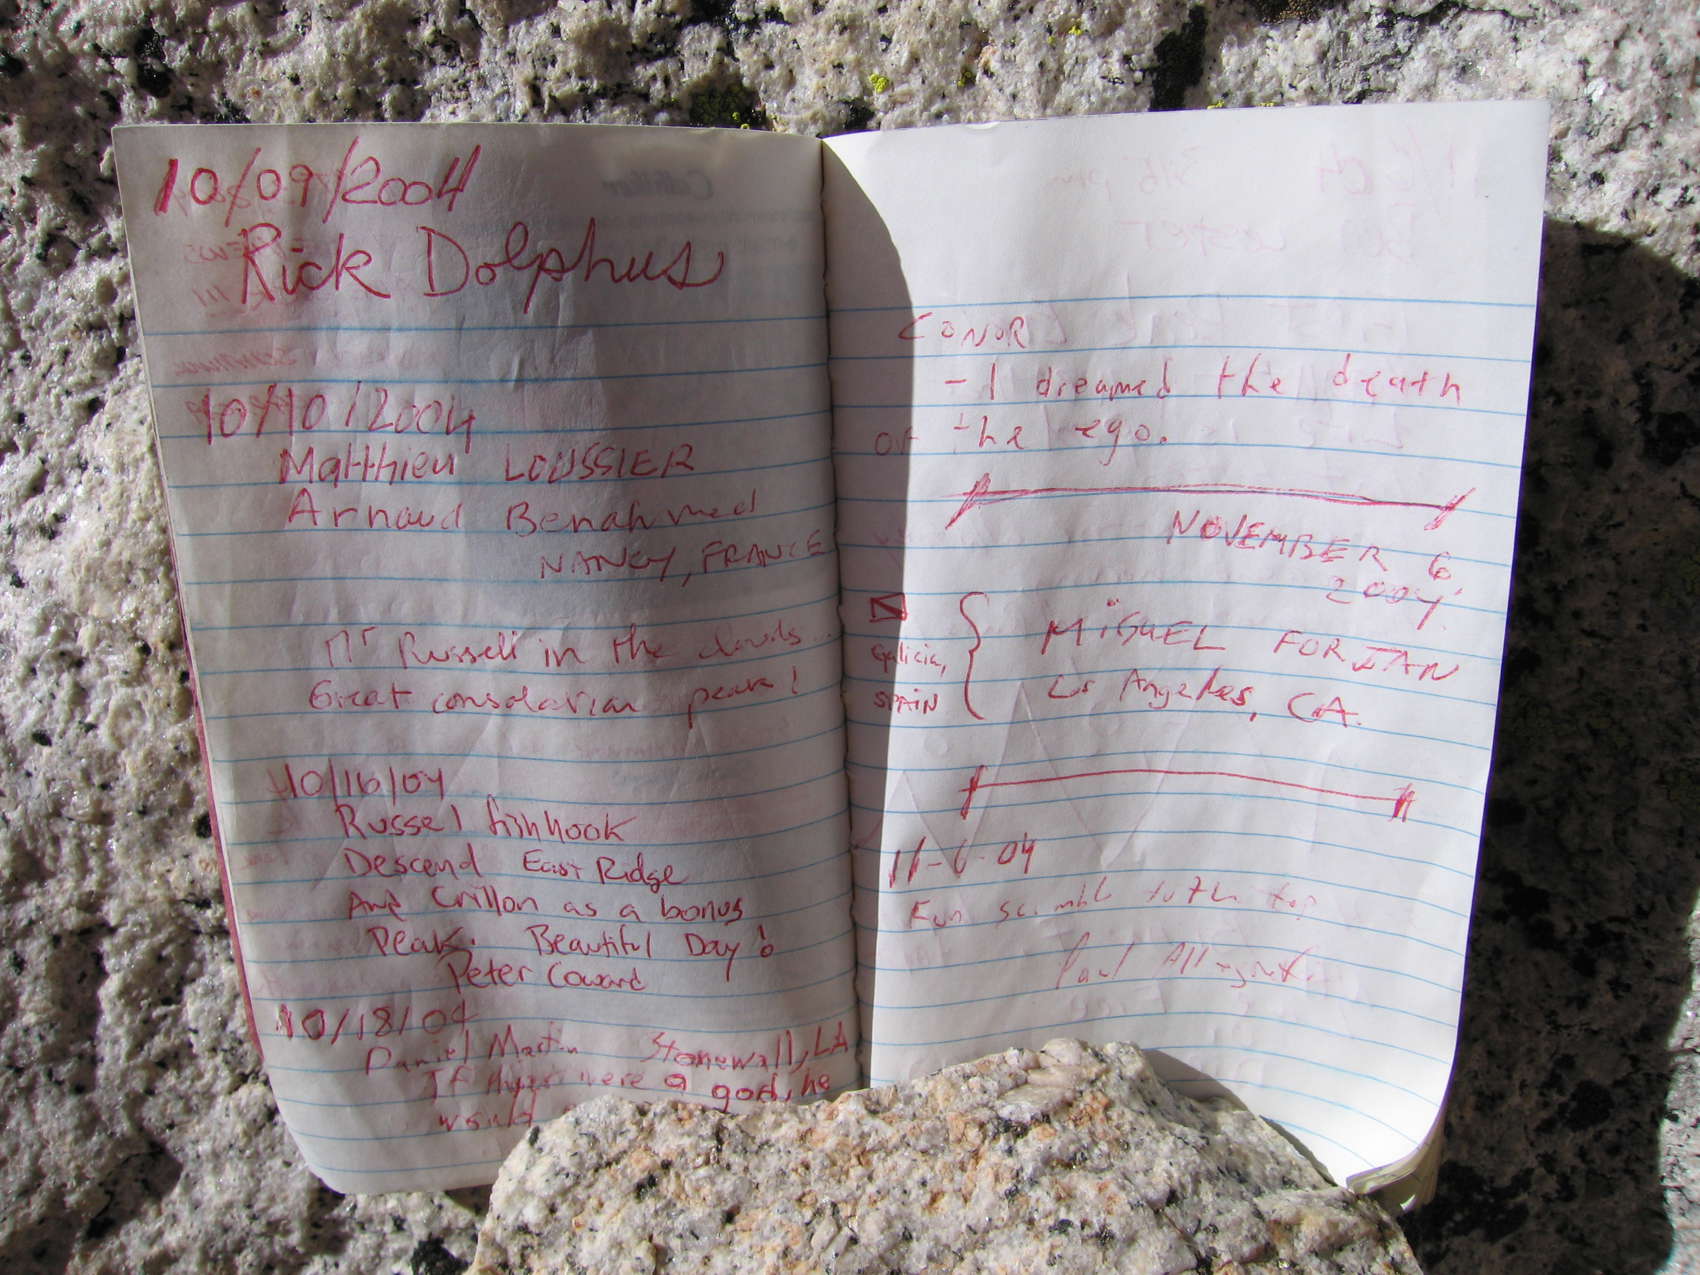 10/09/2004
Rick Dolphus
10/10/2004
Matthieu LOUSSIER
Arnaud Benahmed
NANCY, FRANCE
Mt Russell in the clouds...
Great consolarian peak!
10/16/04
Russel fishhook
Descend East Ridge
And Crillon as a bonus
Peak. Beautiful Day!
Peter Coward
10/18/04
Daniel Martin Stonewall, LA
If were a god, he
would
CONOR
- I dreamed the death
of the ego.
NOVEMBER 6
2004
MIGUEL FORJAN
Los Angeles, CA.
Galicia,
SPAIN
11-6-04
Fun scramble to the top
Paul